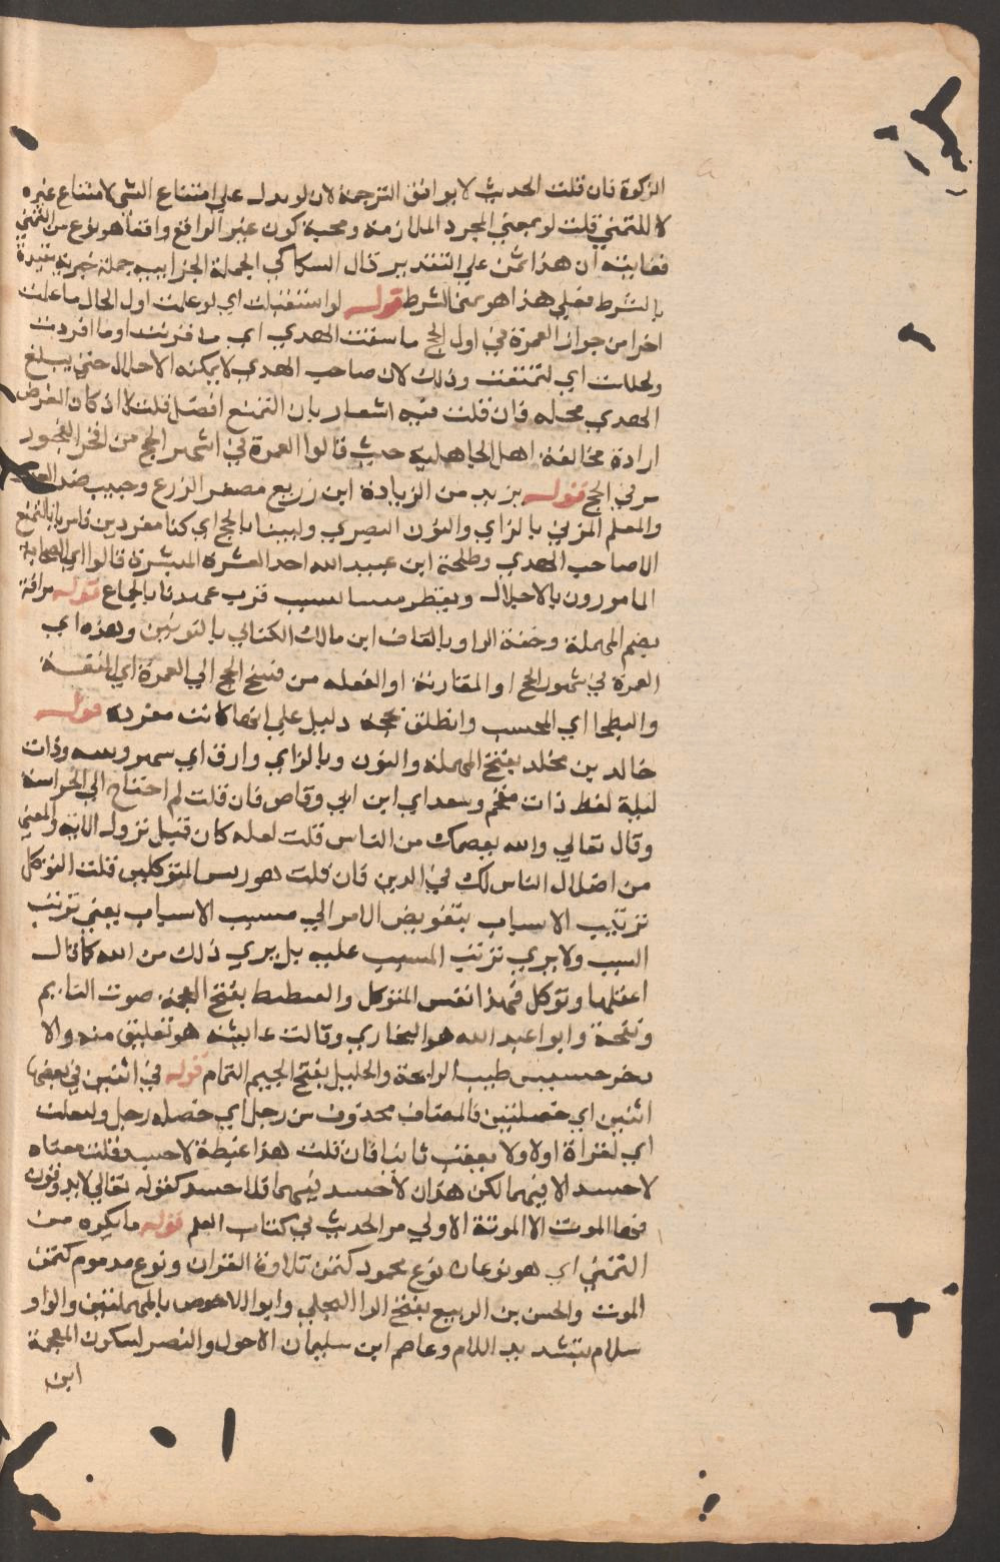 الزكوة فان قلت الحديث لا يوافق الترجمة لان لو يدل علي امتناع الشي لامتناع غيره
لا للتمني قلت لو بمعني المجرد الملازمة ومحبة كون غير الواقع واقعا هو نوع من التمني
فغايته ان هذا تمن علي التقدير قال السكاكي الجملة الجزاييه جملة خبرية مقيدة
بالشرط فعلي هذا هو تمن بالشرط قوله لو استقبلت اي لو علمت اول الحال ما علمت
اخرا من جواز العمرة في اول الحج ما سقت الهدي اي ما قرنت او ما افردت
ولحللت اي لتمتعت وذلك لان صاحب الهدي لا يمكنه الاحلال حتي يبلغ
الهدي محله فان قلت فيه اشعار بان التمتع افضل قلت لا اذ كان الغرض
ارادة مخالفة اهل الجاهلية حيث قالوا العمرة في اشهر الحج من افخر الفجور
من في الحج قوله يزيد من الزيادة ابن زريع مصغر الزرع وحبيب ضد العدو
والمعلم المزني بالزاي والنون البصري ولبينا بالحج اي كنا مفردين فامرنا بالتمتع
الا صاحب الهدي وطلحة ابن عبيد الله احد العشرة المبشرة قالوا اي الصحابة
المامورون بالاحلال ويقطر منيا لسبب قرب عهدنا بالجماع قوله سراقة
بضم المهملة وخفة الرا وبالقاف ابن مالك الكناني بالنونين وهذه اي
العمرة في شهور الحج او المقارنة او الفعله من فسخ الحج الي العمرة اي المتعة
والبطحا اي المحسب وانطلق بحجه دليل علي انها كانت مفردة قوله
خالد بن مخلد بفتح المهملة والنون وبالزاي وارق اي سهر وليله وذات
ليلة لفظ ذات مقحم وسعد اي ابن ابي وقاص فان قلت لم احتاج الي الحراسة
وقال تعالي والله يعصمك من الناس قلت لعله كان قبل نزول الاية والمعني
من اضلال الناس لك في الدين فان قلت هو رييس المتوكلين قلت التوكل
ترتيب الاسباب بتفويض الامر الي مسبب الاسباب يعني ترتب
السبب ولا يري ترتب المسبب عليه بل يري ذلك من الله كما قال
اعقلها وتوكل فهذا نفس المتوكل والغطيط بفتح المعجمة صوت النايم
ونفحة وابو اعبد الله هو البخاري وقالت عايشة هو تعليق منه والا
ذخر حشيش طيب الرايحة والجليل بفتح الجيم الثمام قوله في اثنين في بعضها
اثنتين اي خصلتين فالمضاف محذوف من رجل اي خصلة رجل ولفعلت
اي لقراة اولا ولا يعقب ثانيا فان قلت هذا غبطة لا حسد فقلت معناه
لا حسد الا فيهما لكن هذان لا حسد فيهما فلا حسد كقوله تعالي لا يذوقون
فيها الموت الا الموتة الاولي مر الحديث في كتاب العلم قوله ما يكره من
التمني اي هو نوعان نوع محمود كتمن تلاوة القران ونوع مذموم كتمن
الموت والحسن بن الربيع بفتح الرا البجلي وابو الاحوص بالمهملتين والواو
سلام بتشديد اللام وعاصم ابن سليمان الاحول والنضر لسكون المعجمة
ابن